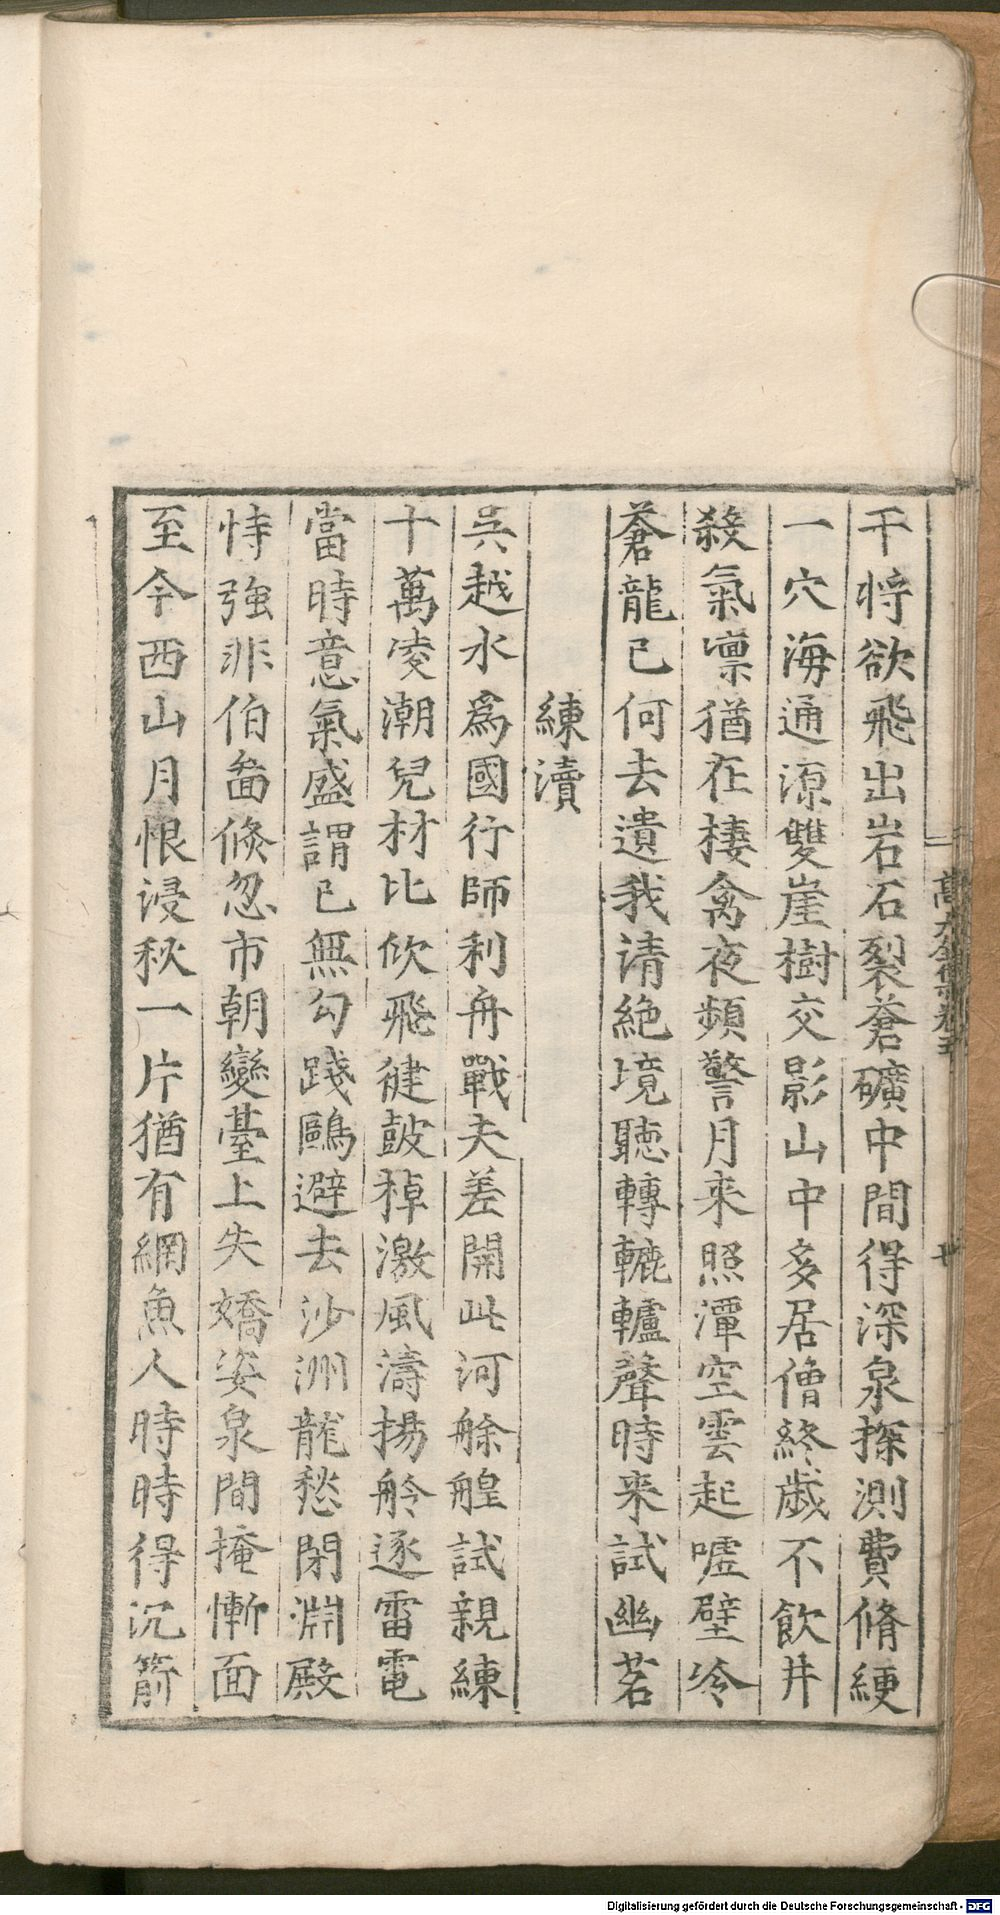 干將欲飛出岩石裂蒼礦中間得深泉探測費脩綆
一穴海通源雙崖樹交影山中多居僧終歲不飲井
殺氣凛猶在棲禽夜頻警月来照潭空雲起噓壁冷
蒼龍已何去遺我清絶境聽轉轆轤聲時来試幽茗
練瀆
吳越水為國行師利舟戰夫差開此河艅艎試親練
十萬凌潮兒材比佽飛健鼓棹激風濤揚舲逐雷電
當時意氣盛謂已無勾踐鷗避去沙洲龍愁閉淵殿
恃強非伯啚倏忽市朝變臺上失嬌姿泉間掩慚面
至今西山月恨浸秋一片猶有網魚人時時得沉箭
Digitalisierung gefördert durch die Deutsche Forschungsgemeinschaft - DFG